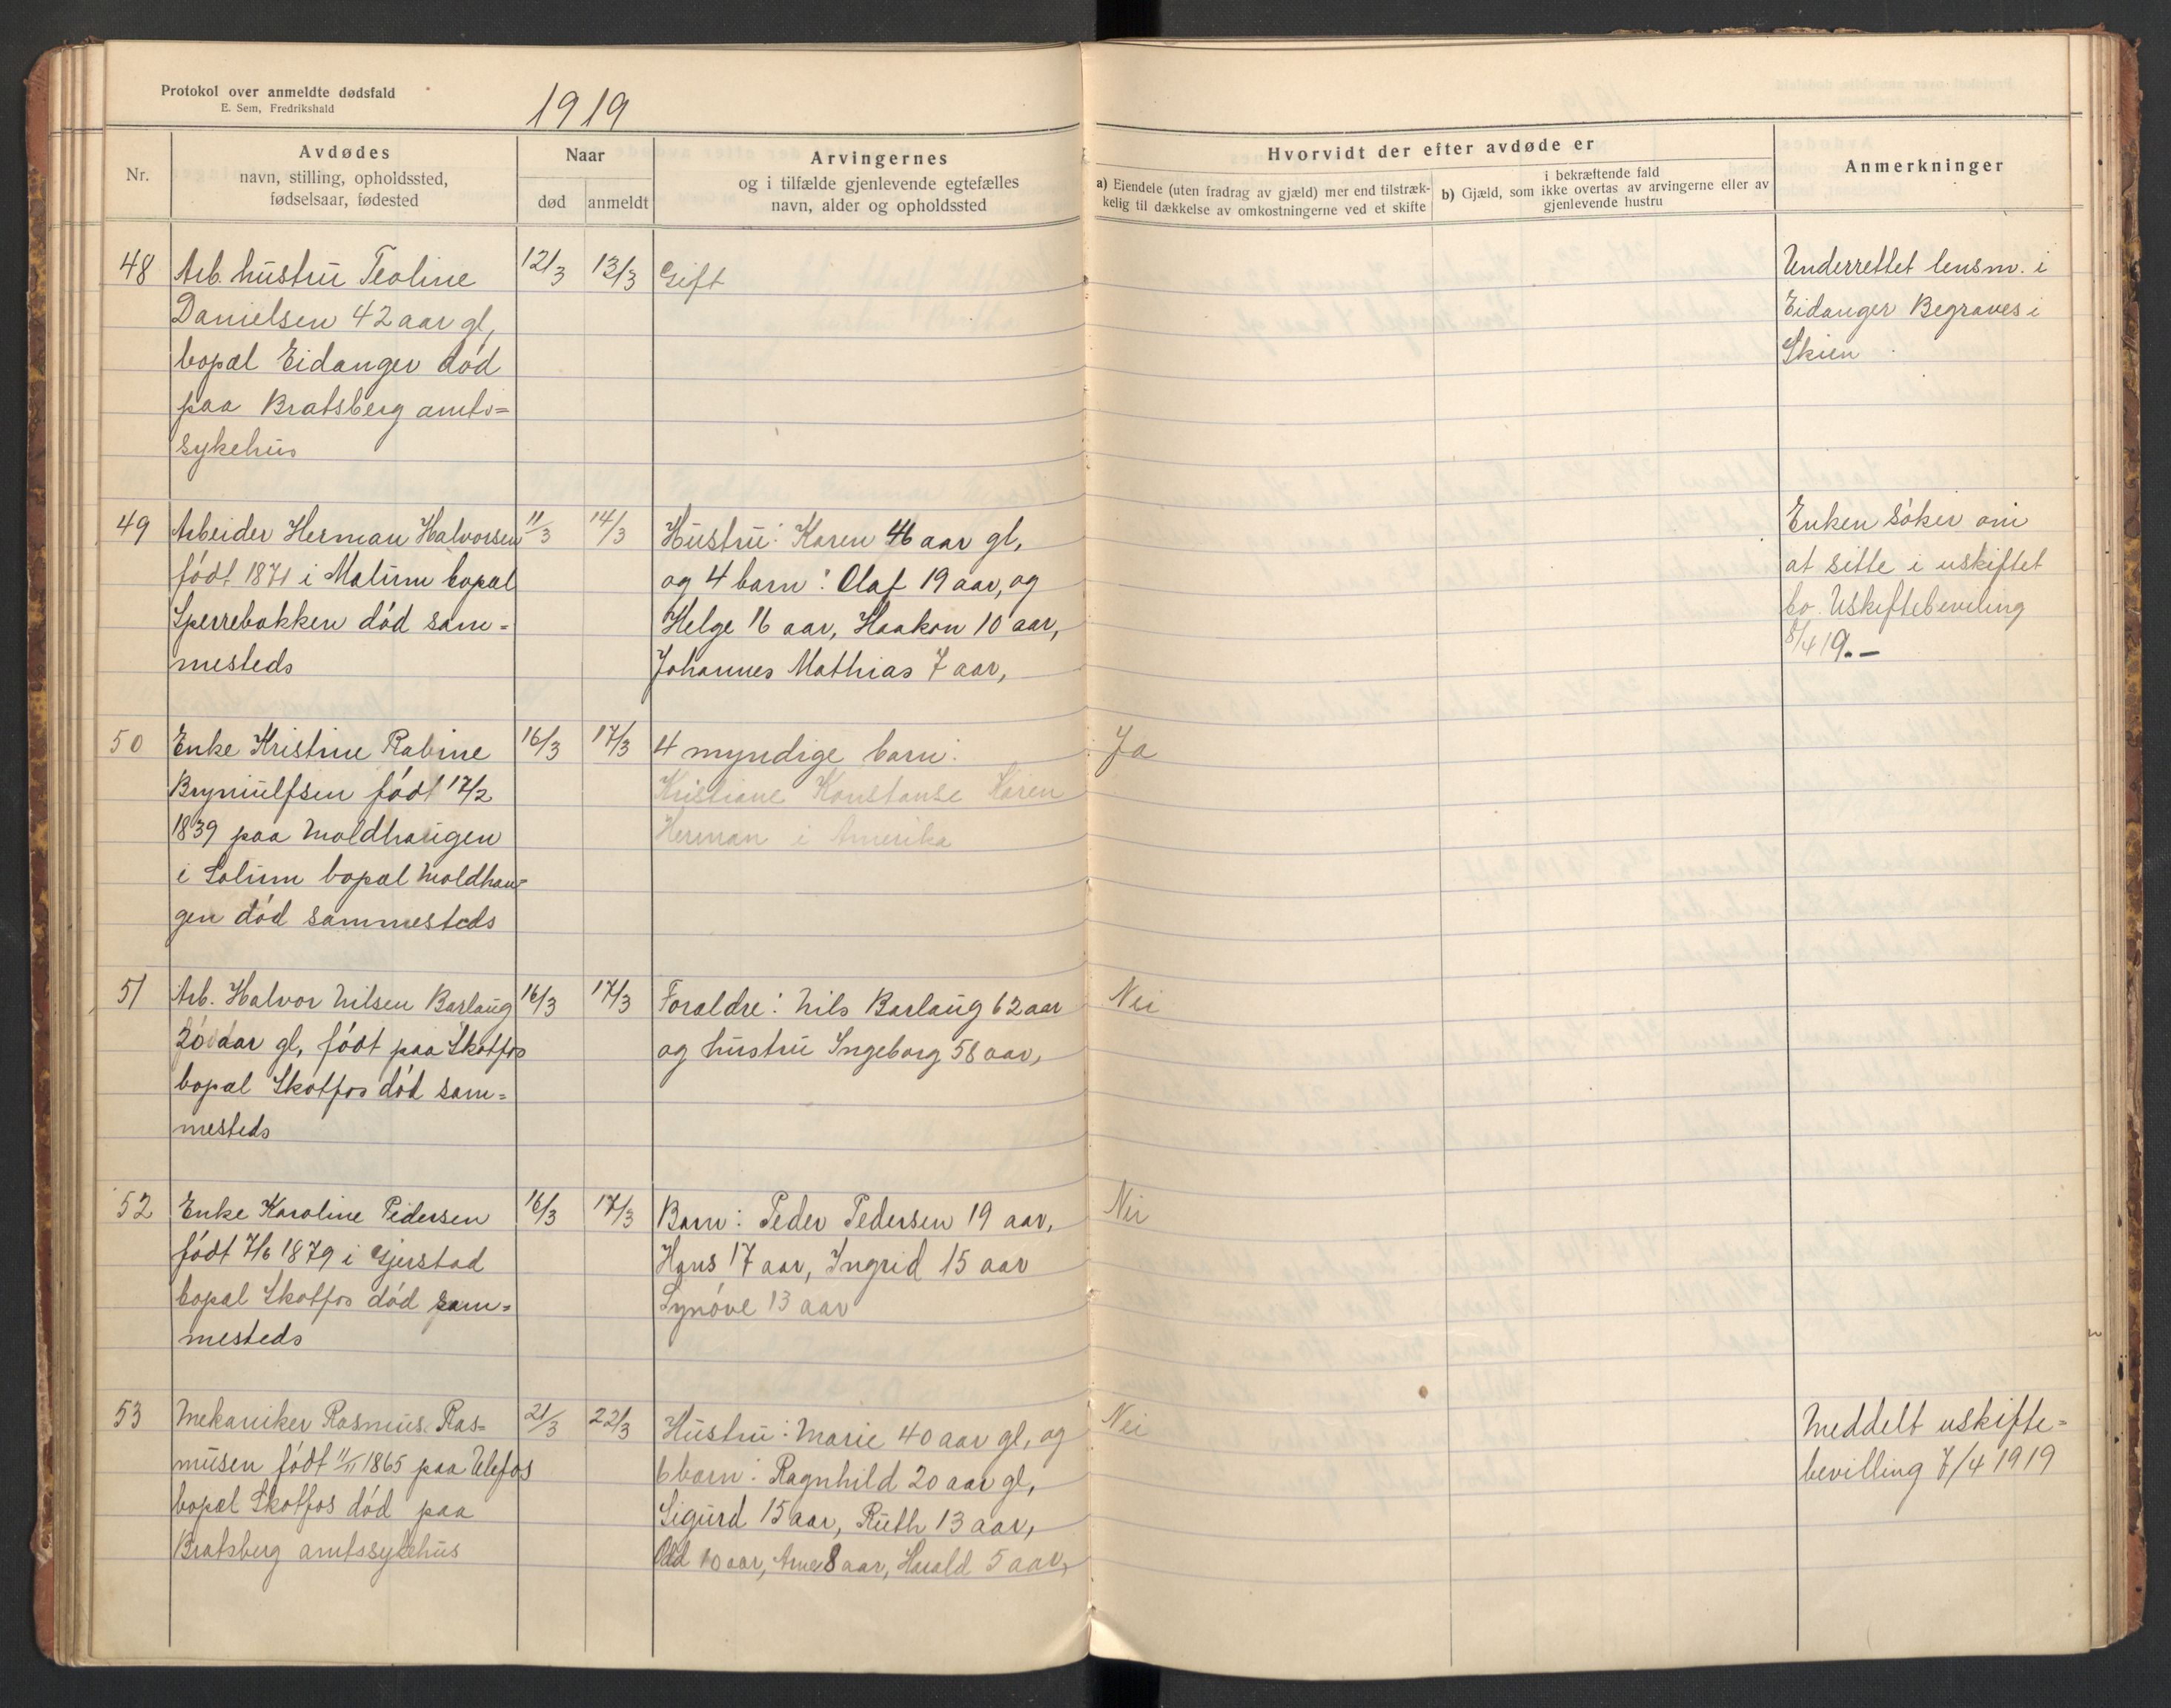 Protokol over anmeldte dødsfald
E. Sem, Fredrikshald
1919
Nr.
Avdødes
navn, stilling, opholdssted,
fødselsaar, fødested
Naar
død
anmeldt
Arvingernes
og i tilfælde gjenlevende egtefælles
navn, alder og opholdssted
Hvorvidt der efter avdøde er
a) Eiendele (uten fradrag av gjæld) mer end tilstræk-
kelig til dækkelse av omkostningerne ved et skifte
i bekræftende fald
b) Gjæld, som ikke overtas av arvingerne eller av
gjenlevende hustru
Anmerkninger
48
Arb. hustru Teoline
Danielsen 42 aar gl,
bopæl Eidanger død
paa Bratsberg amts=
sykehus
12/3
13/3
Gift
Underrettet lensm. i
Eidanger Begraves i
Skien
49
Arbeider Herman Halvorsen
født 1871 i Melum bopæl
Sperrebakken død sam=
mesteds
11/3
14/3
Hustru: Karen 46 aar gl,
og 4 barn: Olaf 19 aar, og
Helge 16 aar, Haakon 10 aar,
Johannes Mathias 7 aar,
Enken søker om
at sitte i uskiftet
bo. Uskiftebeviling
8/4 19.–
50
Enke Kristine Rabine
Brynulfsen født 17/2
1839 paa Moldhaugen
i Solum bopæl Moldhau-
gen død sammesteds
16/3
17/3
4 myndige barn:
Kristiane Konstanse Karen
Herman i Amerika
Ja
51
Arb. Halvor Nilsen Barlaug
20 aar gl, født paa Skotfos
bopæl Skotfos død sam=
mesteds
16/3
17/3
Forældre: Nils Barlaug 62 aar
og hustru Ingeborg 58 aar,
Nei
52
Enke Karoline Pedersen
født 7/6 1879 i Gjerstad
bopæl Skotfos død sam=
mesteds
16/3
17/3
Barn: Peder Pedersen 19 aar,
Hans 17 aar, Ingrid 15 aar
Synøve 13 aar
Nei
53
Mekaniker Rasmus Ras=
musen født 11/11 1865 paa Ulefos
bopæl Skotfos død paa
Bratsberg amtssykehus
21/3
22/3
Hustru: Marie 40 aar gl, og
6 barn: Ragnhild 20 aar gl,
Sigurd 15 aar, Ruth 13 aar,
Odd 10 aar, Arne 8 aar, Harald 5 aar,
Nei
Meddelt uskifte=
bevilling 7/4 1919